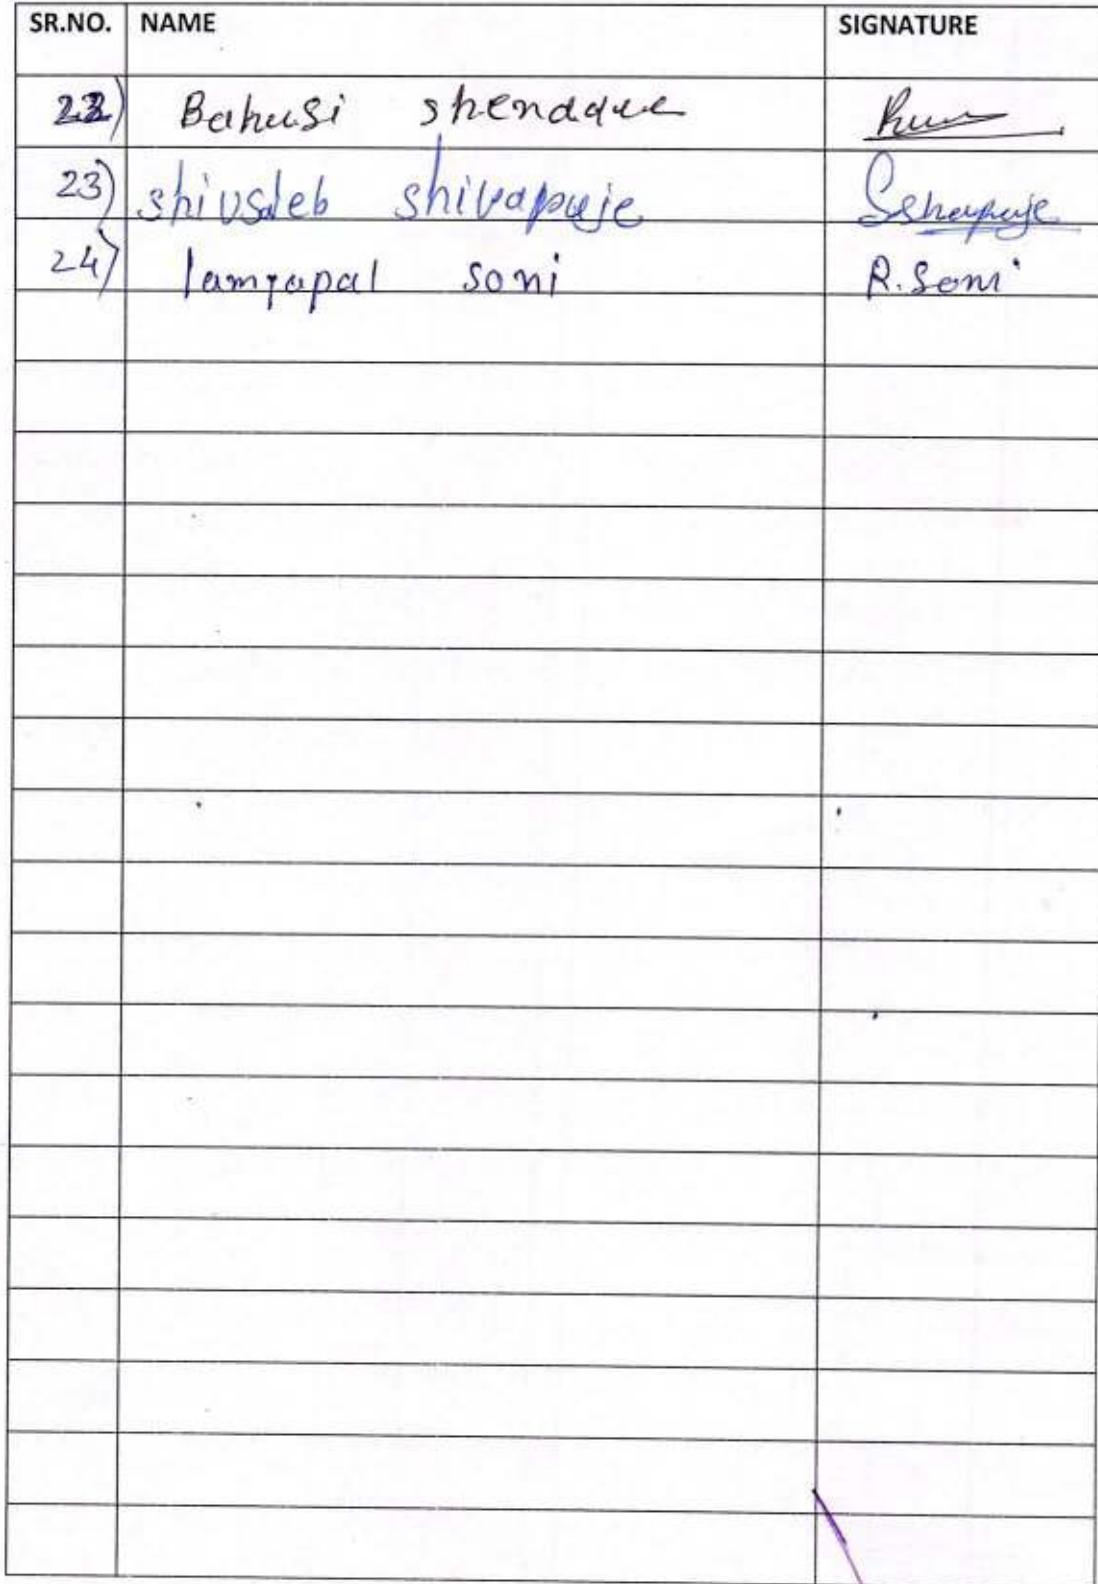 SR.NO. NAME SIGNATURE
22) Bahusi
23) shivsleb shivapuje Sshapuje
24) lamyapal soni R. Soni